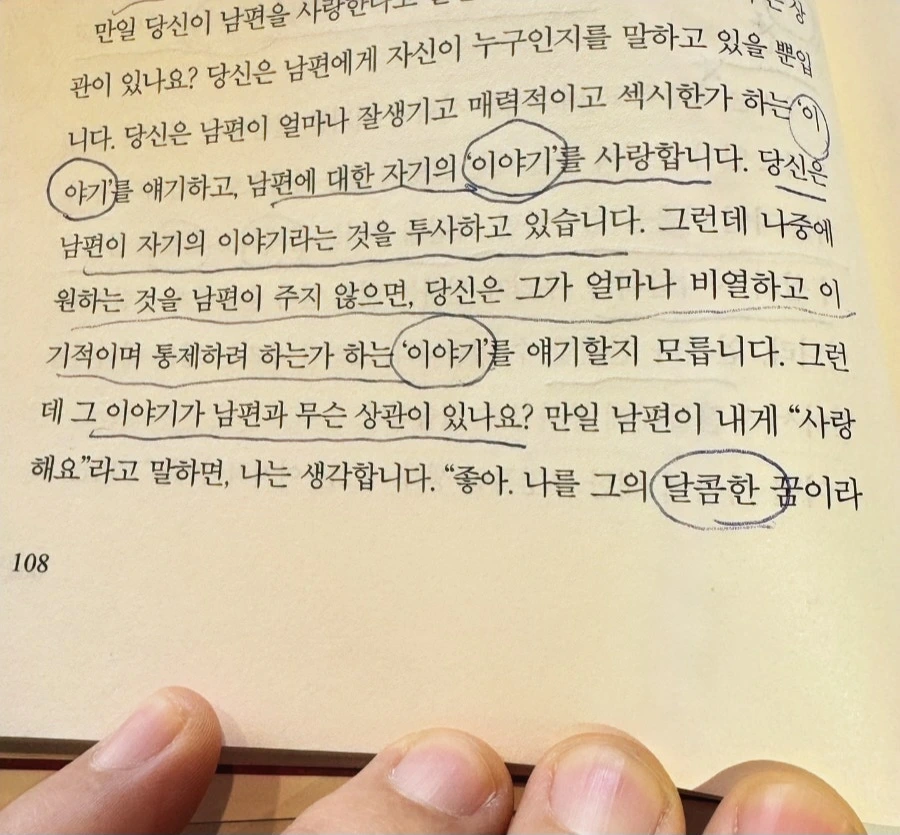 만일 당신이 남편을 사랑한다고
관이 있나요? 당신은 남편에게 자신이 누구인지를 말하고 있을 뿐입
니다. 당신은 남편이 얼마나 잘생기고 매력적이고 섹시한가 하는 ‘이
야기’를 얘기하고, 남편에 대한 자기의 ‘이야기’를 사랑합니다. 당신은
남편이 자기의 이야기라는 것을 투사하고 있습니다. 그런데 나중에
원하는 것을 남편이 주지 않으면, 당신은 그가 얼마나 비열하고 이
기적이며 통제하려 하는가 하는 ‘이야기’를 얘기할지 모릅니다. 그런
데 그 이야기가 남편과 무슨 상관이 있나요? 만일 남편이 내게 “사랑
해요”라고 말하면, 나는 생각합니다. “좋아. 나를 그의 달콤한 꿈이라
108